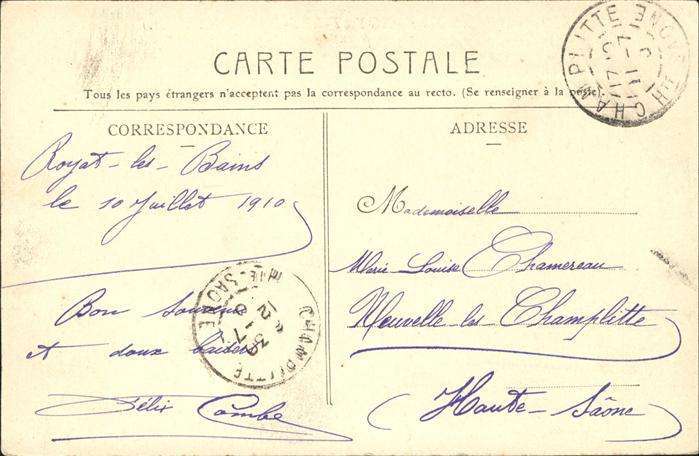 CARTE POSTALE
Tous les pays étrangers n'acceptent pas la correspondance au recto. (Se renseigner à la poste)
CORRESPONDANCE
Royat-les-Bains
le 10 Juillet 1910
Bon souvenir
et doux baisers
Félix Combe
ADRESSE
Mademoiselle
Marie Louise Chamereau
Neuvelle les Champlitte
(Haute-Saône)
CHAMPLITTE
HTE-SAONE
CHAMPLITTE